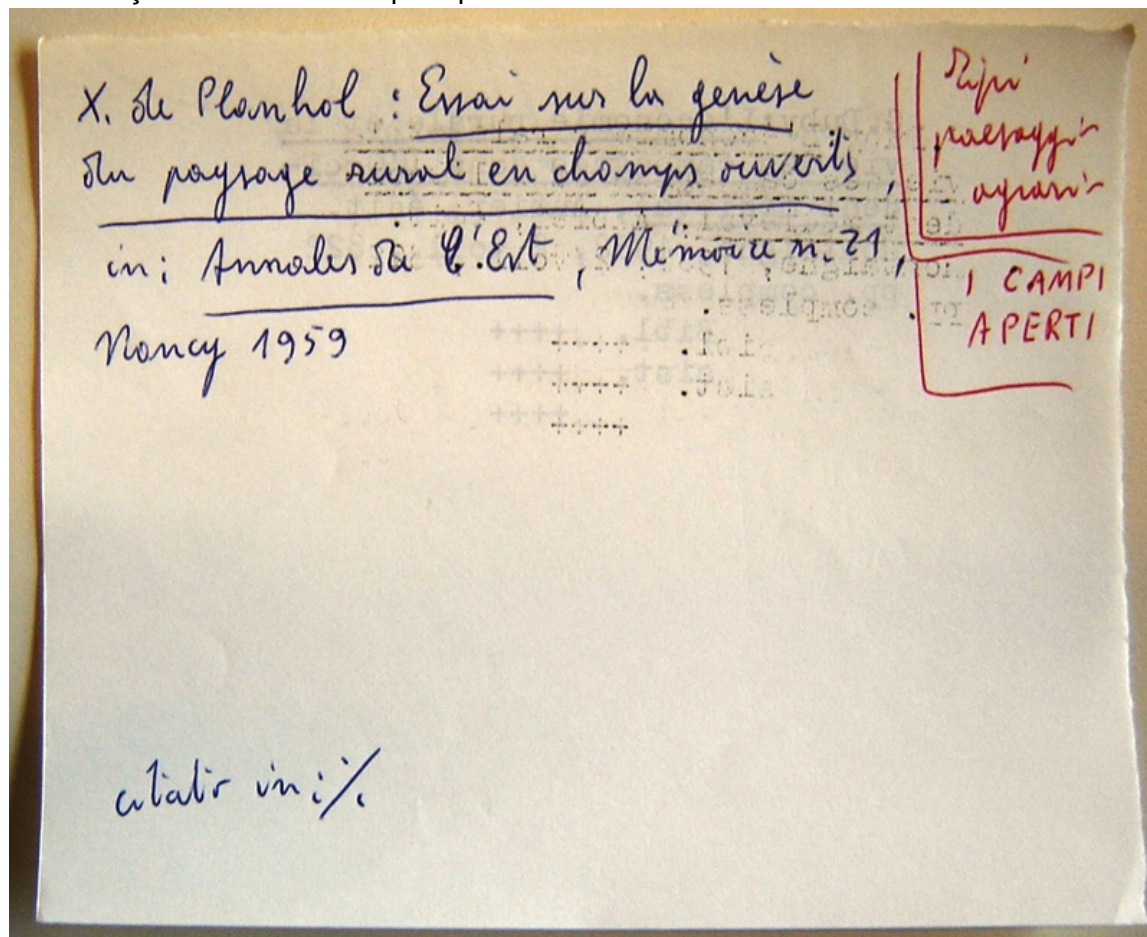 X. de Planhol : Essai sur la genèse
du paysage rural en champs ouverts,
in: Annales de l'Est, Mémoire n. 21,
Nancy 1959
Tipi
paesaggi
agrari
I CAMPI
APERTI
citato in: ./.